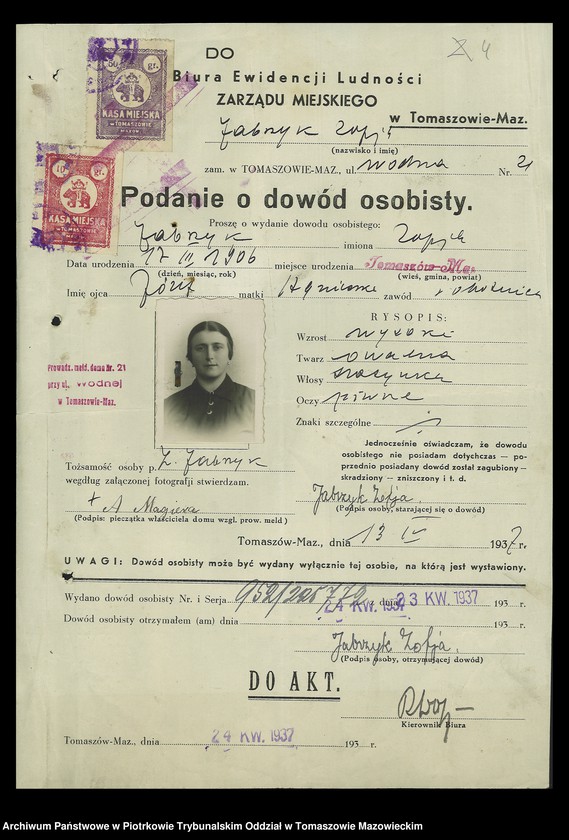 DO
Biura Ewidencji Ludności
ZARZĄDU MIEJSKIEGO
w Tomaszowie-Maz.
50 gr.
KASA MIEJSKA
w TOMASZOWIE
MAZOW.
10 gr.
KASA MIEJSKA
w TOMASZOWIE
MAZOW.
Jabrzyk Zofja
(nazwisko i imię)
zam. w TOMASZOWIE-MAZ., ul. Wodna Nr. 21
Podanie o dowód osobisty.
Proszę o wydanie dowodu osobistego:
Jabrzyk imiona Zofja
Data urodzenia 17 III 1906 miejsce urodzenia Tomaszów-Maz.
(dzień, miesiąc, rok) (wieś, gmina, powiat)
Imię ojca Józef matki Agnieszka zawód robotnica
RYSOPIS:
Wzrost wysoki
Twarz owalna
Włosy
Oczy piwne
Znaki szczególne
Prowadz. meld. domu Nr. 21
przy ul. Wodnej
w Tomaszowie-Maz.
Jednocześnie oświadczam, że dowodu
osobistego nie posiadam dotychczas — po-
przednio posiadany dowód został zagubiony -
skradziony - zniszczony i t. d.
Tożsamość osoby p. Z. Jabrzyk
według załączonej fotografji stwierdzam.
A Magiera
(Podpis: pieczątka właściciela domu wzgl. prow. meld)
Jabrzyk Zofja.
(Podpis osoby, starającej się o dowód)
Tomaszów-Maz., dnia 13 IV 1937 r.
UWAGI: Dowód osobisty może być wydany wyłącznie tej osobie, na którą jest wystawiony.
Wydano dowód osobisty Nr. i Serja 952/205772 z dnia 23 KW. 1937 193 r.
24 KW. 1937
Dowód osobisty otrzymałem (am) dnia 193 r.
Jabrzyk Zofja.
(Podpis osoby, otrzymującej dowód)
DO AKT.
Kierownik Biura
Tomaszów-Maz., dnia 24 KW. 1937 193 r.
Archiwum Państwowe w Piotrkowie Trybunalskim Oddział w Tomaszowie Mazowieckim